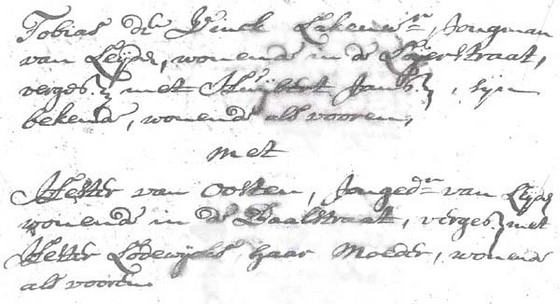 Tobias de Vinck Lakenw:r, Jongman
van Leyde, wonende in de straat,
verges: met Huijbert Jansz, sijn
bekende, wonende als vooren,
met
Hester van Oosten, Jonged:r van Leyd
wonende in de Baatstraat, verges: met
Hester Lodewijcks haar Moeder, wonende
als vooren